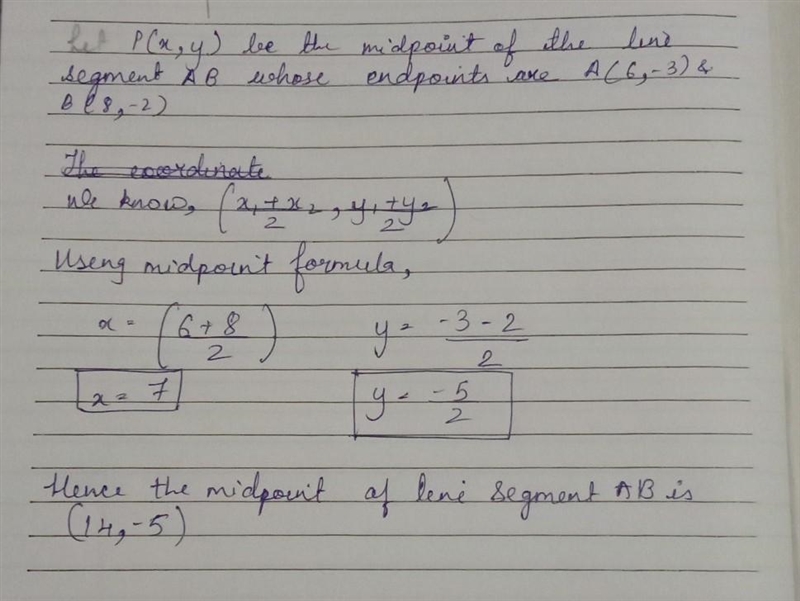 Let P(x, y) be the midpoint of the line
segment AB whose endpoints are A(6, -3) &
B(8, -2)
The coordinate
We know, (x₁ + x₂ / 2 , y₁ + y₂ / 2)
Using midpoint formula,
x = (6 + 8 / 2) y = -3 - 2 / 2
x = 7 y = -5 / 2
Hence the midpoint of line segment AB is
(14, -5)